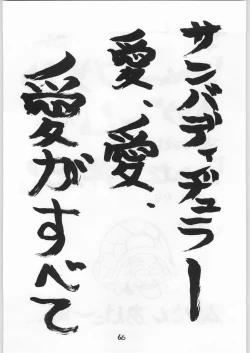 サンバディチュラー
愛、愛、
愛がすべて
66